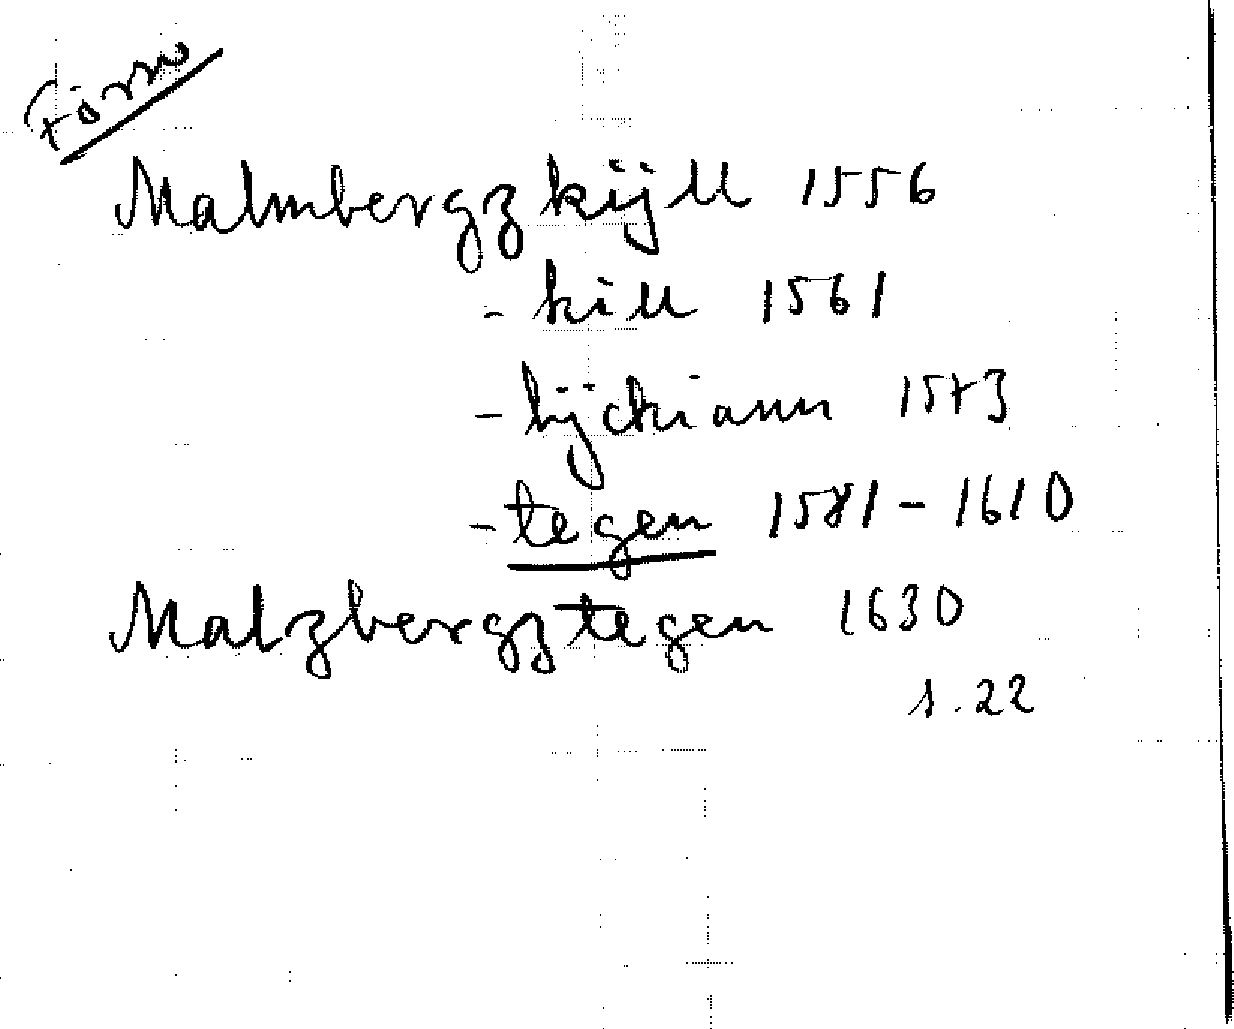 Förno
Malmbergz kijll 1556
- kill 1561
- kijckiann 1573
- tegen 1581-1610
Malzbergztegen 1630
s. 22